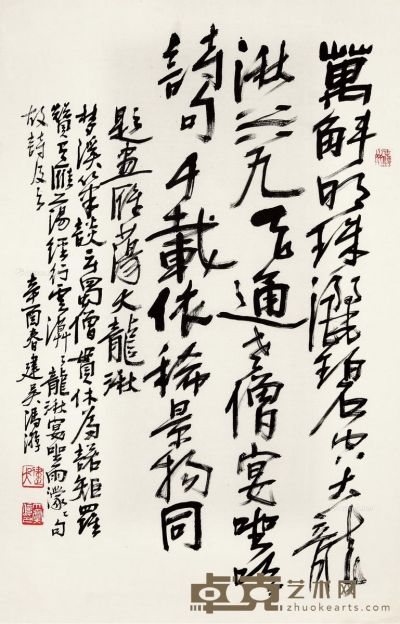 萬斛明珠灑碧空大龍
湫共九天通老僧宴坐吟
詩句千載依稀景物同
題畫雁蕩大龍湫
夢溪筆談云蜀僧貫休為諾矩羅
贊有雁蕩經行雲漠〻龍湫宴坐雨濛〻句
故詩及之
辛酉春建吳
卓克艺术网
zhuokearts.com